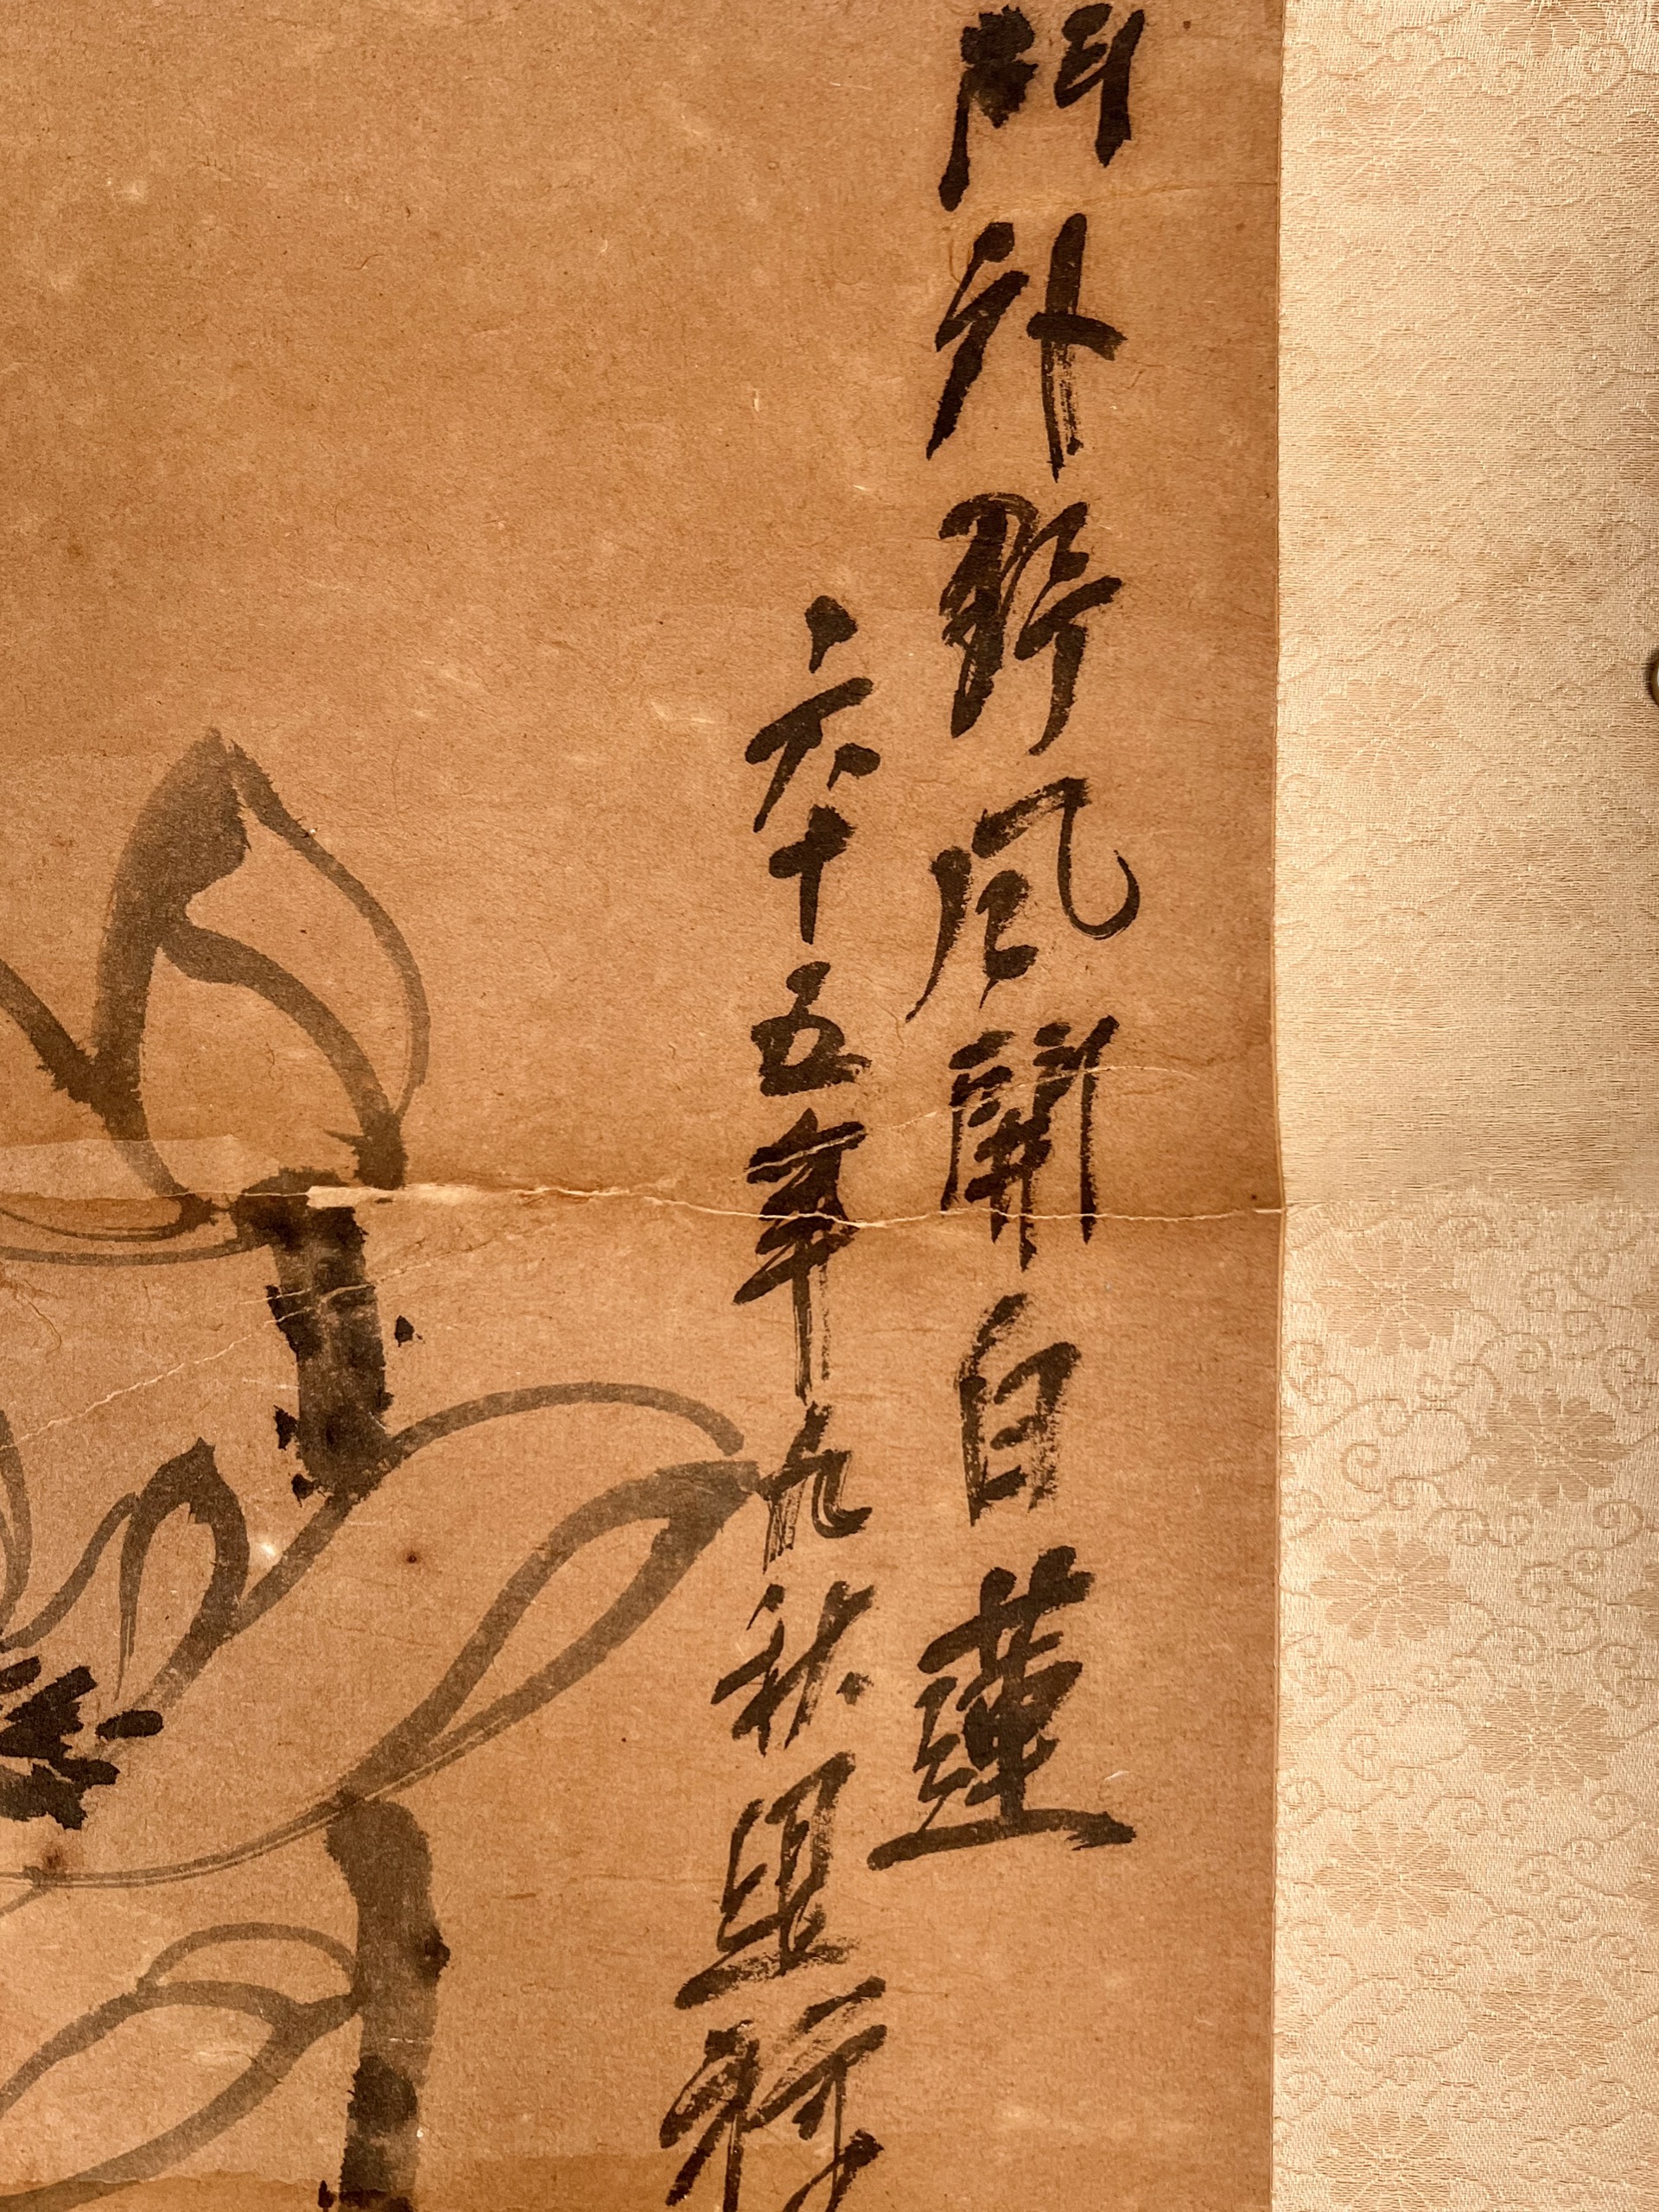 門外野風開白蓮
六十五年九秋